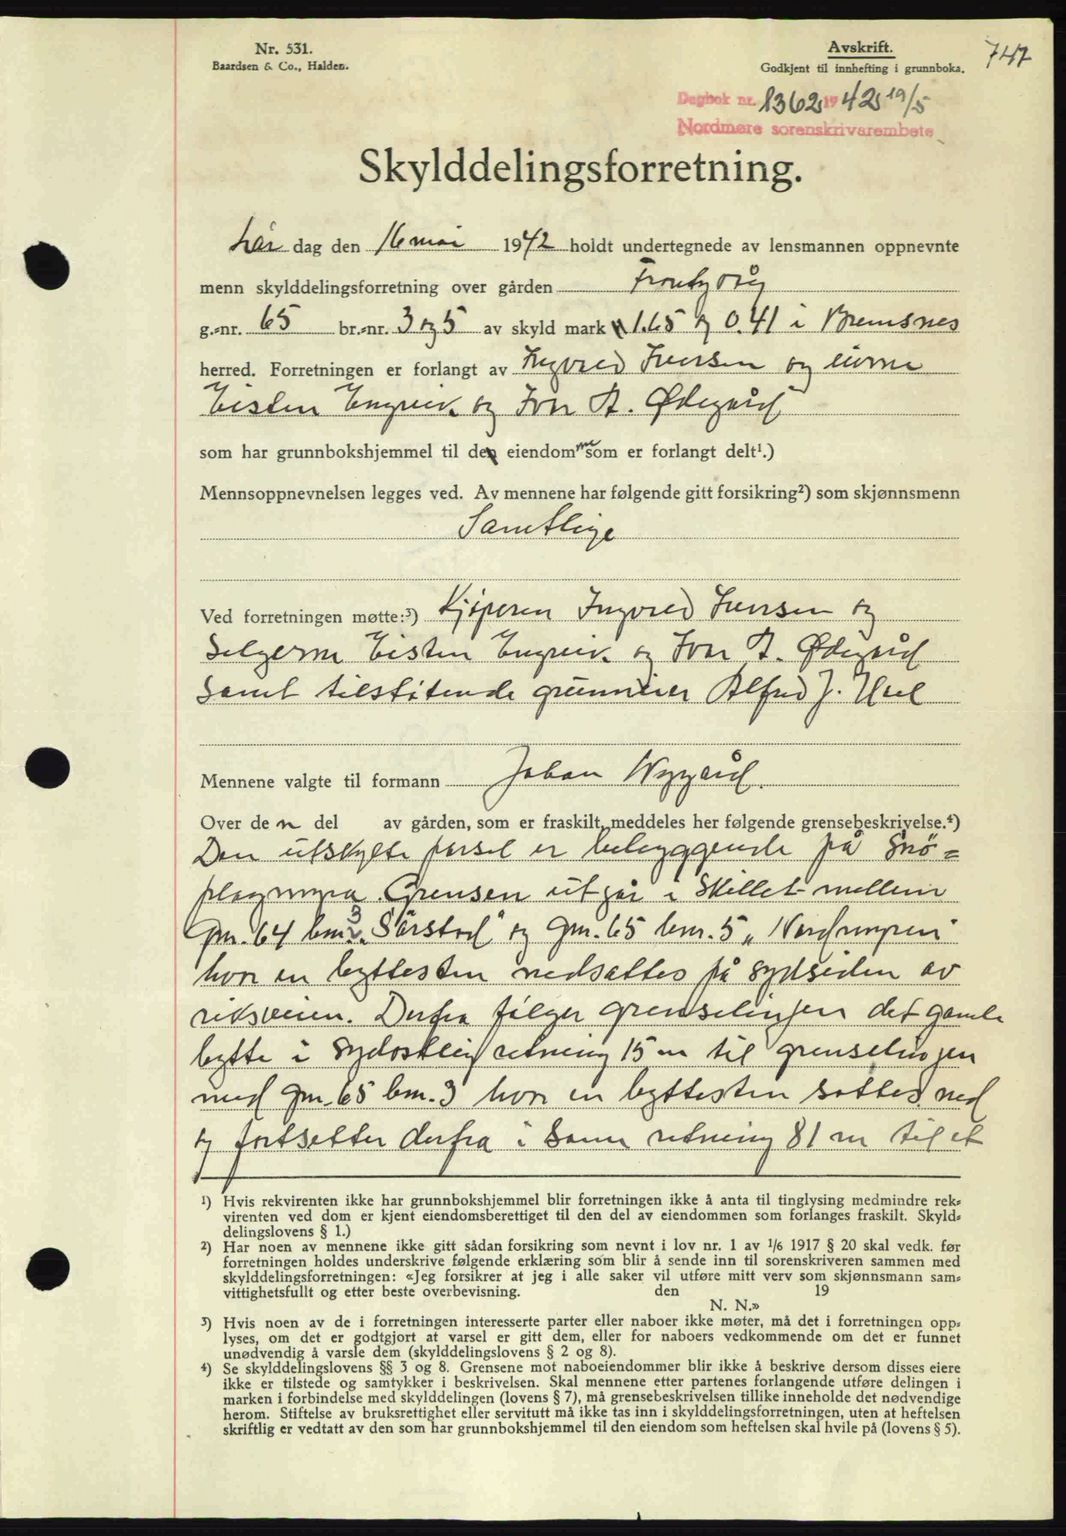 Nr. 531.
Baardsen & Co., Halden.
Avskrift.
Godkjent til innhefting i grunnboka.
747
Dagbok nr. 1362 1942 19/5
Nordmøre sorenskrivarembete
Skylddelingsforretning.
Lør dag den 16 mai 1942 holdt undertegnede av lensmannen oppnevnte
menn skylddelingsforretning over gården
g.-nr. 65 br.-nr. 3 og 5 av skyld mark 1.65 og 0.41 i Bremsnes
herred. Forretningen er forlangt av Ingvald Iversen og eierne
Eisten Engvik og Ivar A. Ødegård
som har grunnbokshjemmel til de eiendommene som er forlangt delt¹.)
Mennsoppnevnelsen legges ved. Av mennene har følgende gitt forsikring²) som skjønnsmenn
Samtlige
Ved forretningen møtte:³) Kjøperen Ingvald Iversen og
Selgerne Eisten Engvik og Ivar A. Ødegård
samt tilstøtende grunneier Alfred J.
Mennene valgte til formann Johan Nygård.
Over den del av gården, som er fraskilt, meddeles her følgende grensebeskrivelse.⁴)
Den utskylte parsel er beliggende på Snö=
plagmyra. Grensen utgår i skillet mellem
gnr. 64 bnr. 3 „Sørstad" og gnr. 65 bnr. 5 „Nordmyren"
hvor en byttesten nedsattes på sydsiden av
riksveien. Derfra følger grenselinjen det gamle
bytte i sydostlig retning 15 m til grenselinjen
med gnr. 65 bnr. 3 hvor en byttesten sattes ned
og fortsetter derfra i samme retning 81 m til et
¹) Hvis rekvirenten ikke har grunnbokshjemmel blir forretningen ikke å anta til tinglysing medmindre rek-
virenten ved dom er kjent eiendomsberettiget til den del av eiendommen som forlanges fraskilt. Skyld-
delingslovens § 1.)
²) Har noen av mennene ikke gitt sådan forsikring som nevnt i lov nr. 1 av 1/6 1917 § 20 skal vedk. før
forretningen holdes underskrive følgende erklæring som blir å sende inn til sorenskriveren sammen med
skylddelingsforretningen: «Jeg forsikrer at jeg i alle saker vil utføre mitt verv som skjønnsmann sam-
vittighetsfullt og etter beste overbevisning. den 19
N. N.»
³) Hvis noen av de i forretningen interesserte parter eller naboer ikke møter, må det i forretningen opp-
lyses, om det er godtgjort at varsel er gitt dem, eller for naboers vedkommende om det er funnet
unødvendig å varsle dem (skylddelingslovens § 2 og 8).
⁴) Se skylddelingslovens §§ 3 og 8. Grensene mot naboeiendommer blir ikke å beskrive dersom disses eiere
ikke er tilstede og samtykker i beskrivelsen. Skal mennene etter partenes forlangende utføre delingen i
marken i forbindelse med skylddelingen (lovens § 7), må grensebeskrivelsen tillike inneholde det nødvendige
herom. Stiftelse av bruksrettighet eller servitutt må ikke tas inn i skylddelingsforretningen, uten at heftelsen
skriftlig er vedtatt av den som har grunnbokshjemmel til den eiendom som heftelsen skal hvile på (lovens § 5).